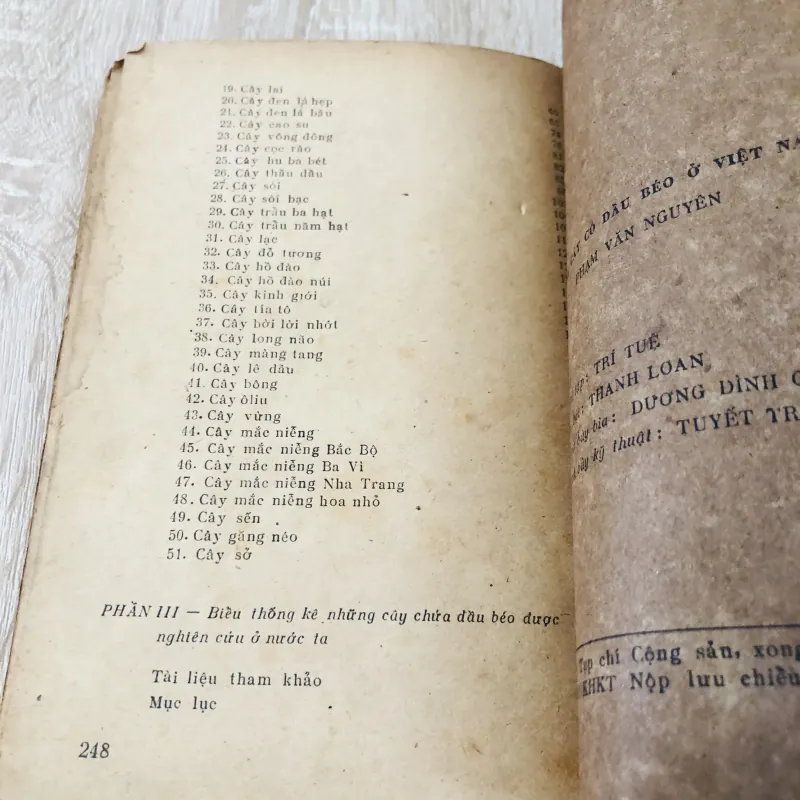 19. Cây lai
20. Cây đen lá hẹp
21. Cây đen lá bầu
22. Cây cao su
23. Cây vông đồng
24. Cây cọc rào
25. Cây bu ba bét
26. Cây thầu dầu
27. Cây sòi
28. Cây sòi bạc
29. Cây trầu ba hạt
30. Cây trầu năm hạt
31. Cây lạc
32. Cây đỗ tương
33. Cây hồ đào
34. Cây hồ đào núi
35. Cây kinh giới
36. Cây tía tô
37. Cây bời lời nhớt
38. Cây long não
39. Cây màng tang
40. Cây lê dầu
41. Cây bông
42. Cây ôliu
43. Cây vừng
44. Cây mắc niễng
45. Cây mắc niễng Bắc Bộ
46. Cây mắc niễng Ba Vì
47. Cây mắc niễng Nha Trang
48. Cây mắc niễng hoa nhỏ
49. Cây sến
50. Cây găng néo
51. Cây sở
PHẦN III — Biểu thống kê những cây chứa dầu béo được
nghiên cứu ở nước ta
Tài liệu tham khảo
Mục lục
248
CÓ DẦU BÉO Ở VIỆT
PHẠM VĂN NGUYÊN
TRÍ TUỆ
THANH LOAN
bìa: DƯƠNG ĐÌNH
kỹ thuật: TUYẾT
Tạp chí Cộng sản, xong
KHKT Nộp lưu chiểu